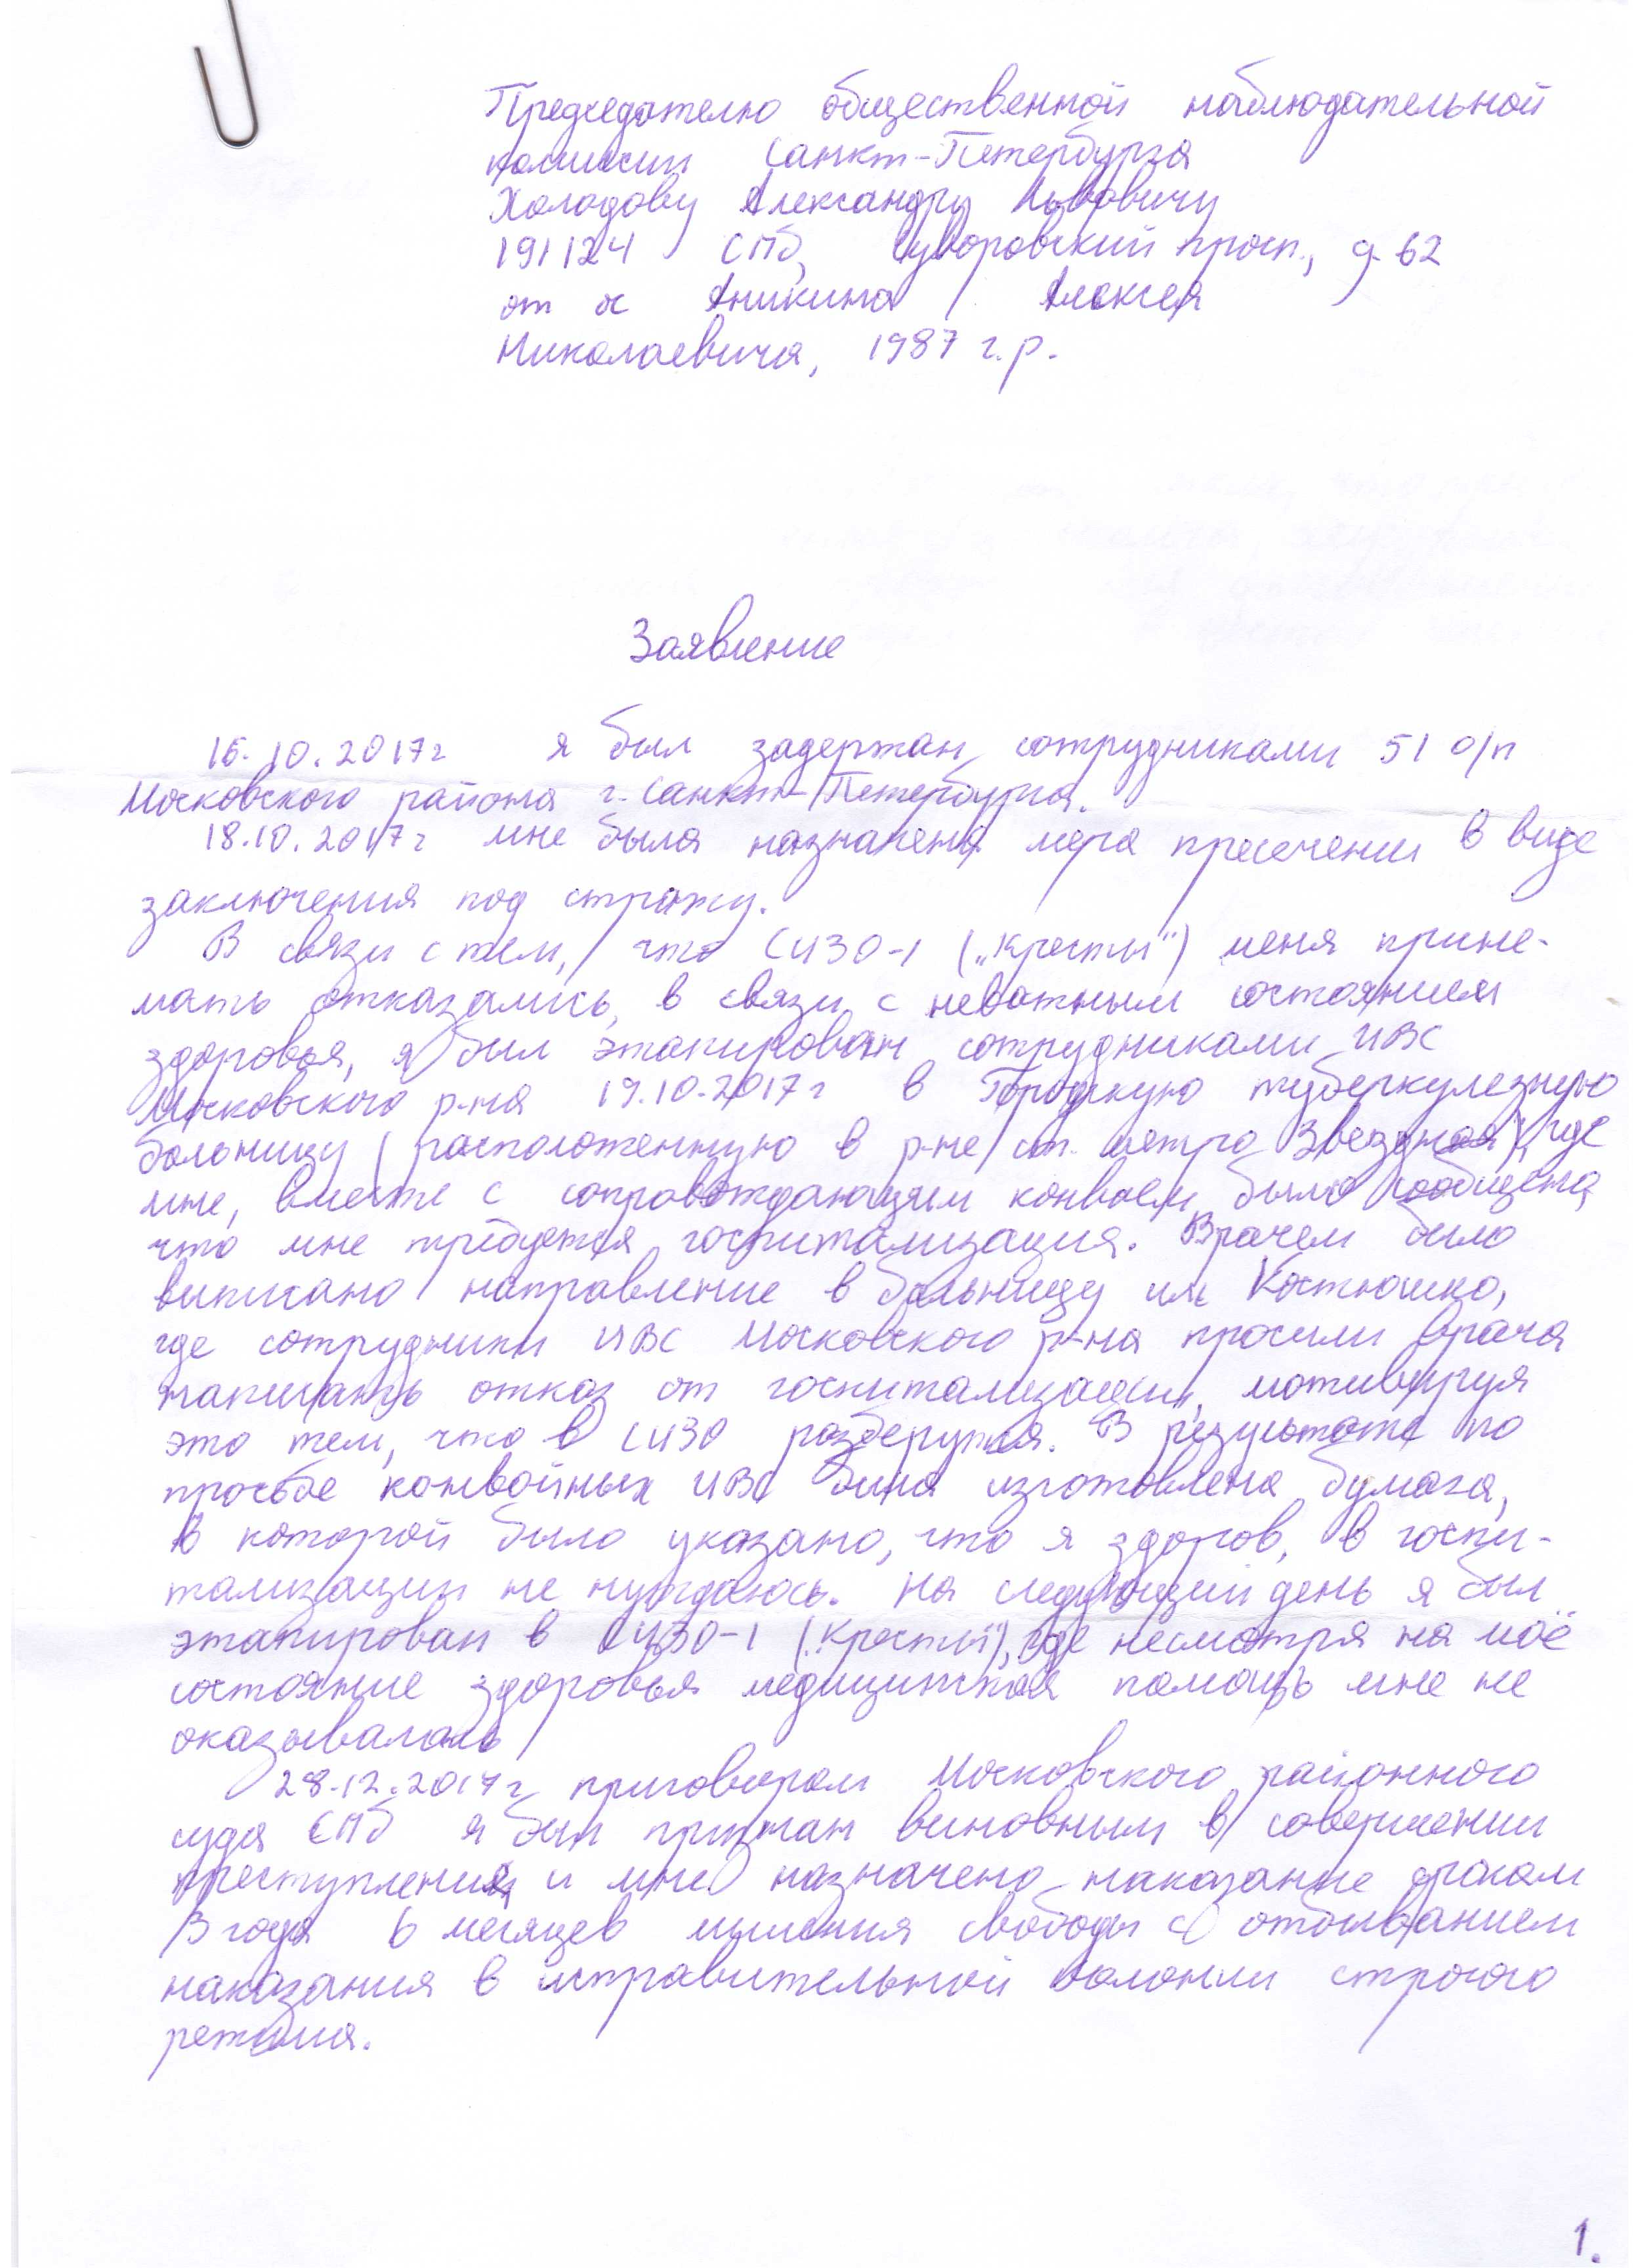 Председателю общественной наблюдательной
комиссии Санкт-Петербурга
Холодову Александру Львовичу
191124 СПб, Суворовский просп., д. 62
от Аникина Алексея
Николаевича, 1987 г.р.
Заявление
16.10.2017г я был задержан сотрудниками 51 о/п
Московского района г. Санкт-Петербурга.
18.10.2017г мне была назначена мера пресечении в виде
заключения под стражу.
В связи с тем, что СИЗО-1 („Кресты“) меня прине-
мать отказались, в связи с неважным состоянием
здоровья, я был этапирован сотрудниками ИВС
Московского р-на 19.10.2017г в Городскую туберкулезную
больницу (расположенную в р-не ст. метро Звездная), где
мне, вместе с сопровождающим конвоем было сообщено,
что мне требуется госпитализация. Врачем было
выписано направление в больницу им Костюшко,
где сотрудники ИВС Московского р-на просили врача
написать отказ от госпитализации, мотивируя
это тем, что в СИЗО разберутся. В результате по
просьбе конвойных ИВС была изготовлена бумага,
в которой было указано, что я здоров, в госпи-
тализации не нуждаюсь. На следующий день я был
этапирован в СИЗО-1 („Кресты“), где несмотря на моё
состояние здоровья медицинская помощь мне не
оказывалась
28.12.2017г приговором Московского районного
суда СПб я был признан виновным в совершении
преступления и мне назначено наказание сроком
3 года 6 месяцев лишения свободы с отбыванием
наказания в исправительной колонии строгого
режима.
1.